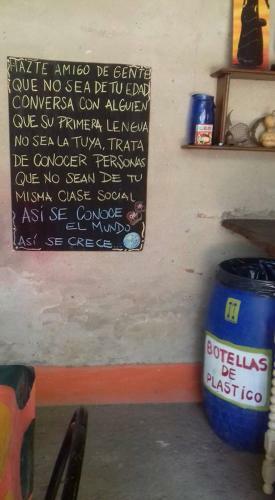 HAZTE AMIGO DE GENTE
QUE NO SEA DE TU EDAD
CONVERSA CON ALGUIEN
QUE SU PRIMERA LENGUA
NO SEA LA TUYA, TRATA
DE CONOCER PERSONAS
QUE NO SEAN DE TU
MISMA CLASE SOCIAL
ASÍ SE CONOCE
EL MUNDO
ASÍ SE CRECE
BOTELLAS
DE
PLASTICO